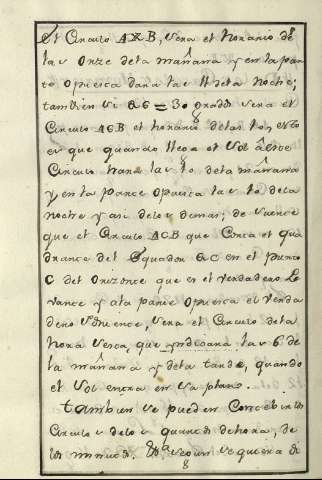 el Circulo AXB, sera el horario de
las onze de la mañana y en la par
te opuesta dara las 11 de la noche;
tambien si a 6 = 30 grados sera el
Circulo A6B el horario de las 10, esto
es que quando llega el Sol â este
Circulo hara las 10 de la mañana
y en la parte opuesta las 10 de la
noche y asi de los demas; de suerte
que el Circulo ACB que Corta el qua
drante del Equador a C en el punto
C del Orizonte que es el verdadero Le
vante y a la parte opuesta el verda
dero Poniente, sera el Circulo de la
hora sexta, que yndicara las 6 de
la mañana y de la tarde, quando
el Sol entra en su plano.
tambien se pueden Concebir los
Circulos de los quartos de hora, de
los minutos. segun se quiera di
8